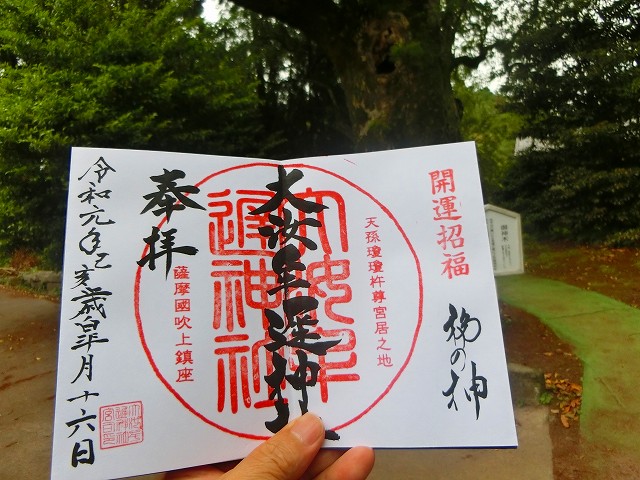 開運招福
福の神
天孫瓊瓊杵尊宮居之地
大汝牟遅神
大汝牟
遲神社
薩摩國吹上鎮座
奉拝
令和元年己亥歳皐月十六日